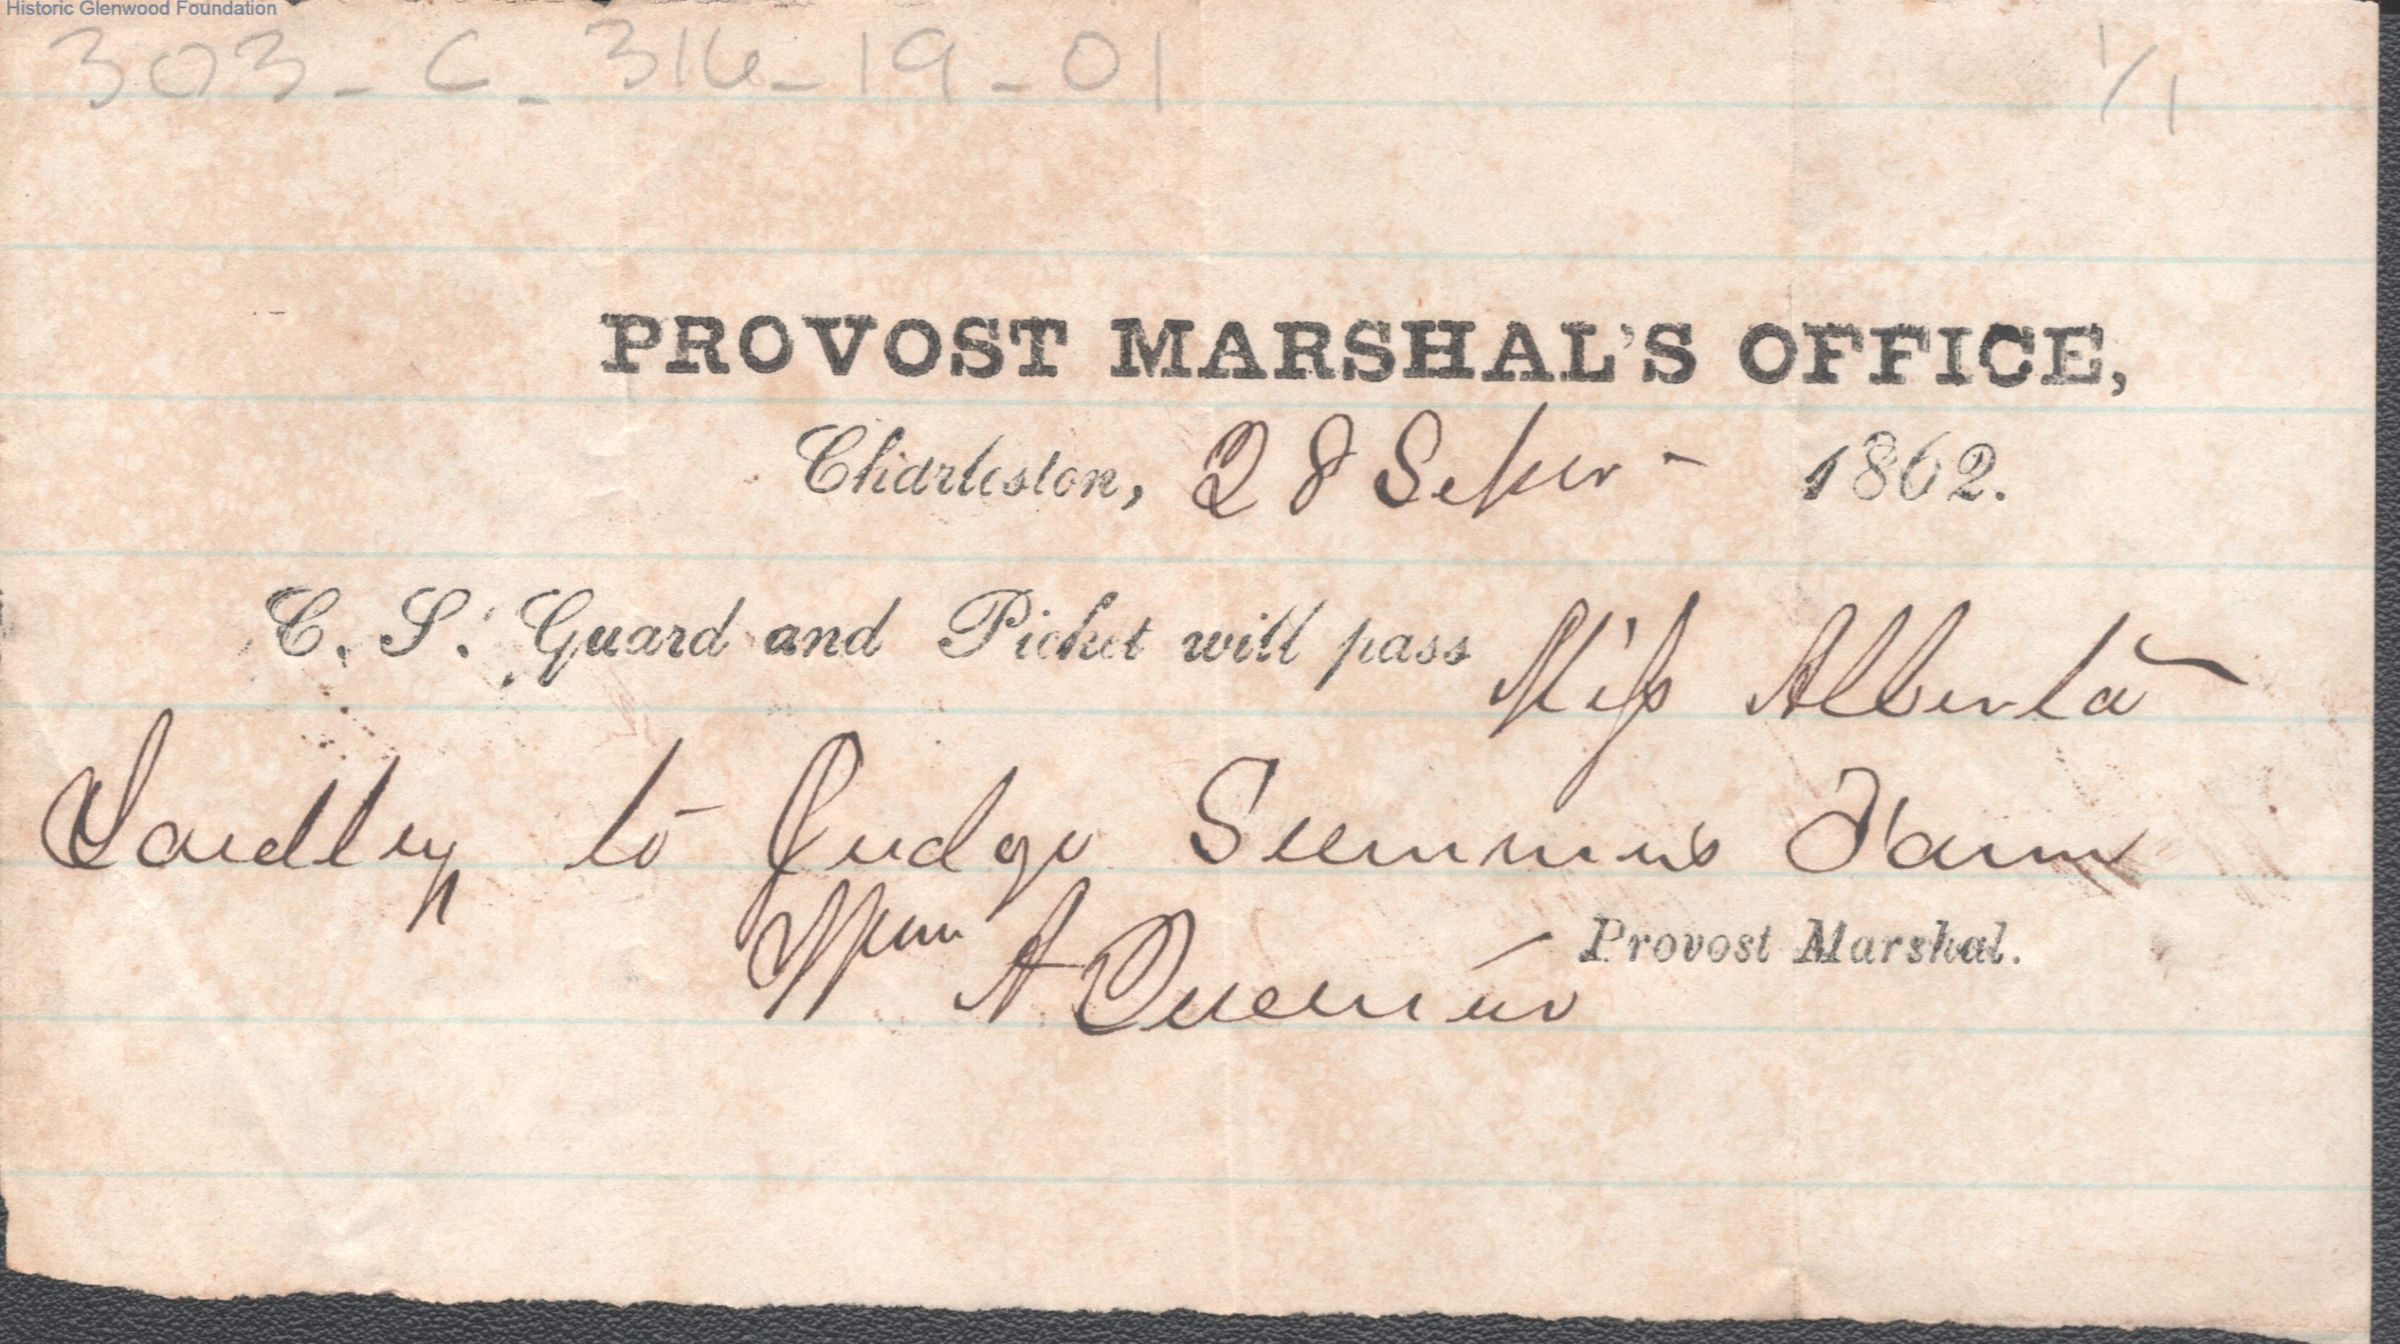 Historic Glenwood Foundation
303-C-316-19-01 1/1
PROVOST MARSHAL'S OFFICE,
Charleston, 28 Sepr - 1862.
C. S. Guard and Picket will pass Miss Alberta
Laidley to Judge Summers Farm
Provost Marshal.
Wm A